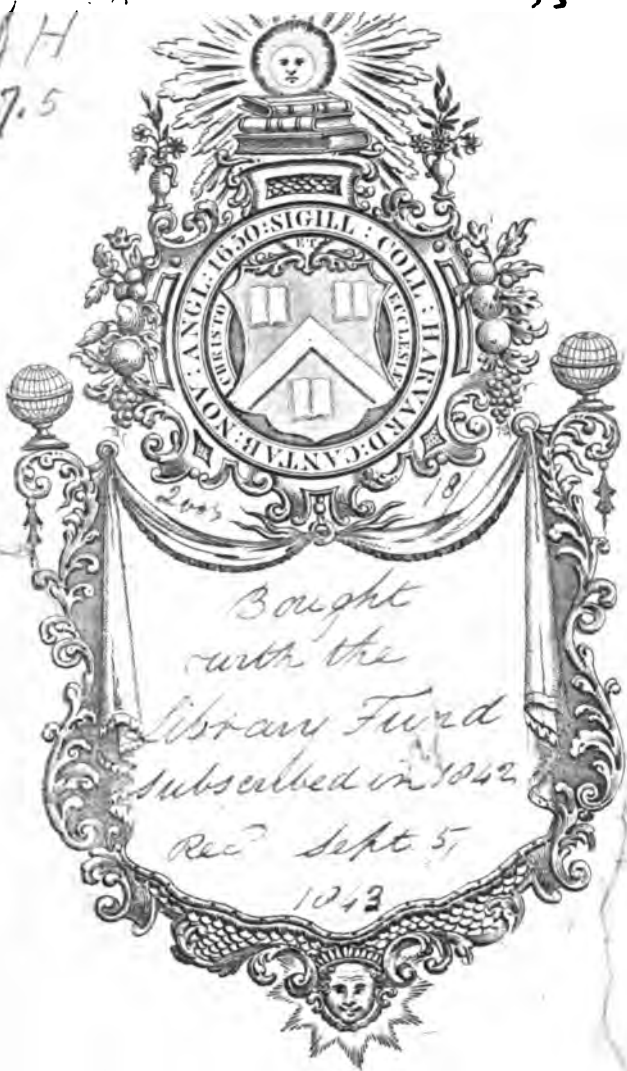 H
7.5
SIGILL : COLL : HARVARD : CANTAB : NOV : ANGL : 1650 :
CHRISTO ET ECCLESIÆ
18
Bought
with the
Library Fund
subscribed in 1842
Rec^d Sept. 5,
1843